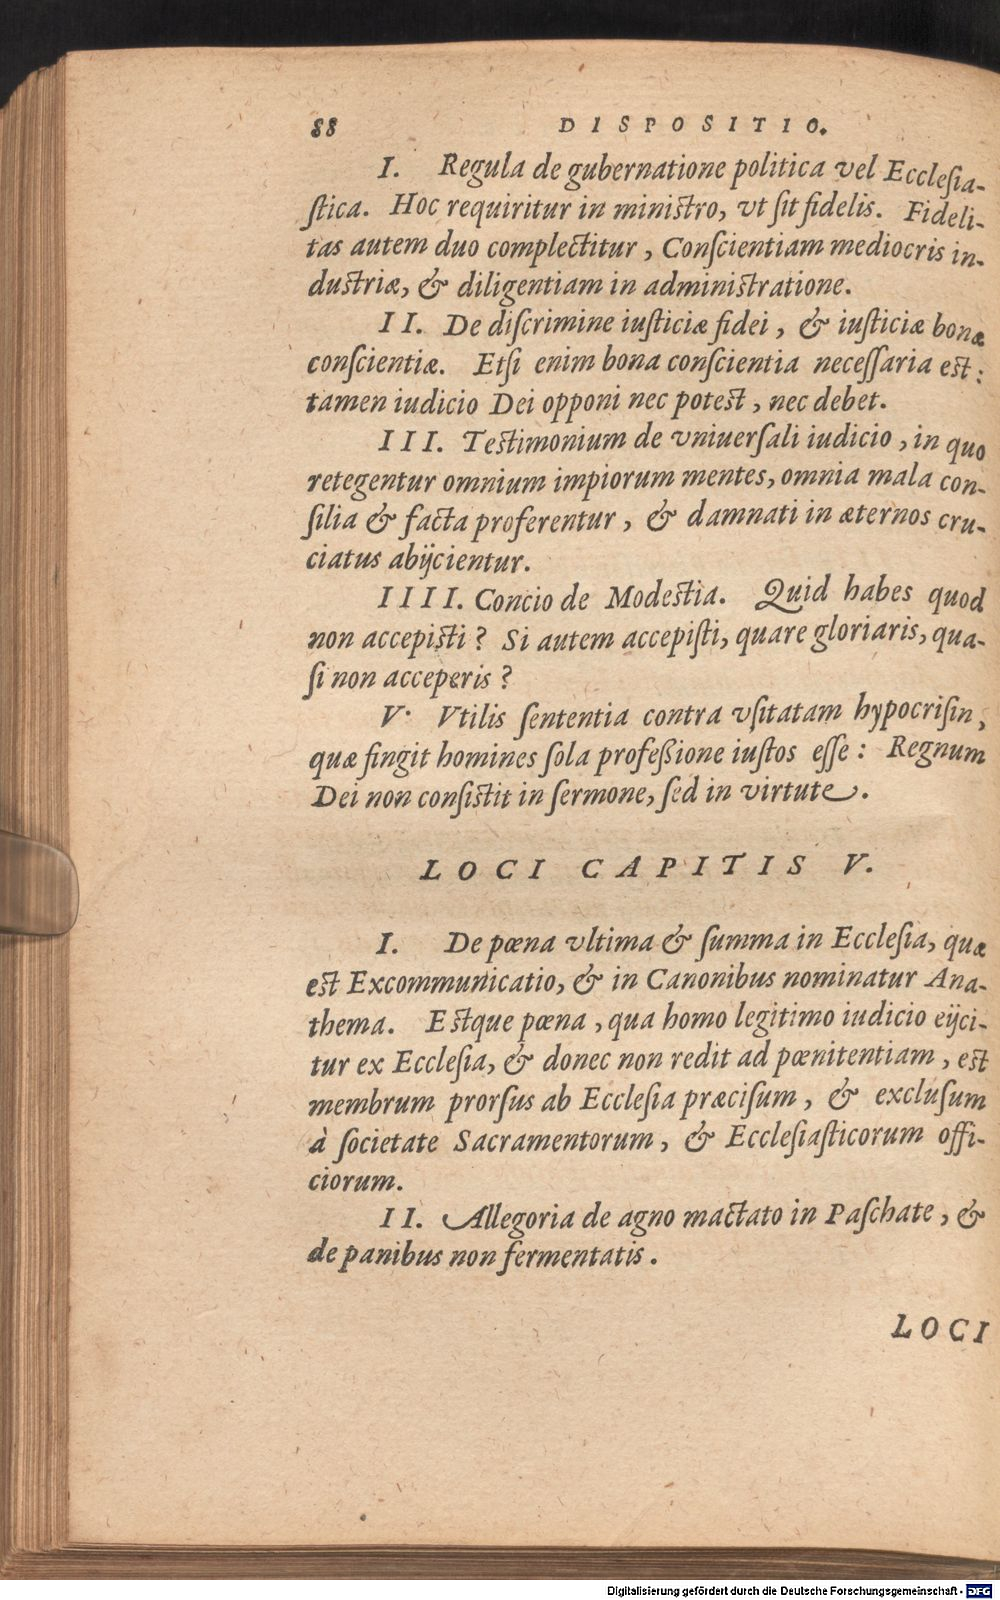 88 DISPOSITIO.
I. Regula de gubernatione politica vel Ecclesia-
stica. Hoc requiritur in ministro, vt sit fidelis. Fideli-
tas autem duo complectitur, Conscientiam mediocris in-
dustriæ, & diligentiam in administratione.
II. De discrimine iusticiæ fidei, & iusticiæ bonæ
conscientiæ. Etsi enim bona conscientia necessaria est:
tamen iudicio Dei opponi nec potest, nec debet.
III. Testimonium de vniuersali iudicio, in quo
retegentur omnium impiorum mentes, omnia mala con-
silia & facta proferentur, & damnati in æternos cru-
ciatus abijcientur.
IIII. Concio de Modestia. Quid habes quod
non accepisti? Si autem accepisti, quare gloriaris, qua-
si non acceperis?
V. Vtilis sententia contra vsitatam hypocrisin,
quæ fingit homines sola profeßione iustos esse: Regnum
Dei non consistit in sermone, sed in virtute.
LOCI CAPITIS V.
I. De pœna vltima & summa in Ecclesia, quæ
est Excommunicatio, & in Canonibus nominatur Ana-
thema. Estque pœna, qua homo legitimo iudicio eijci-
tur ex Ecclesia, & donec non redit ad pœnitentiam, est
membrum prorsus ab Ecclesia præcisum, & exclusum
à societate Sacramentorum, & Ecclesiasticorum offi-
ciorum.
II. Allegoria de agno mactato in Paschate, &
de panibus non fermentatis.
LOCI
Digitalisierung gefördert durch die Deutsche Forschungsgemeinschaft - DFG